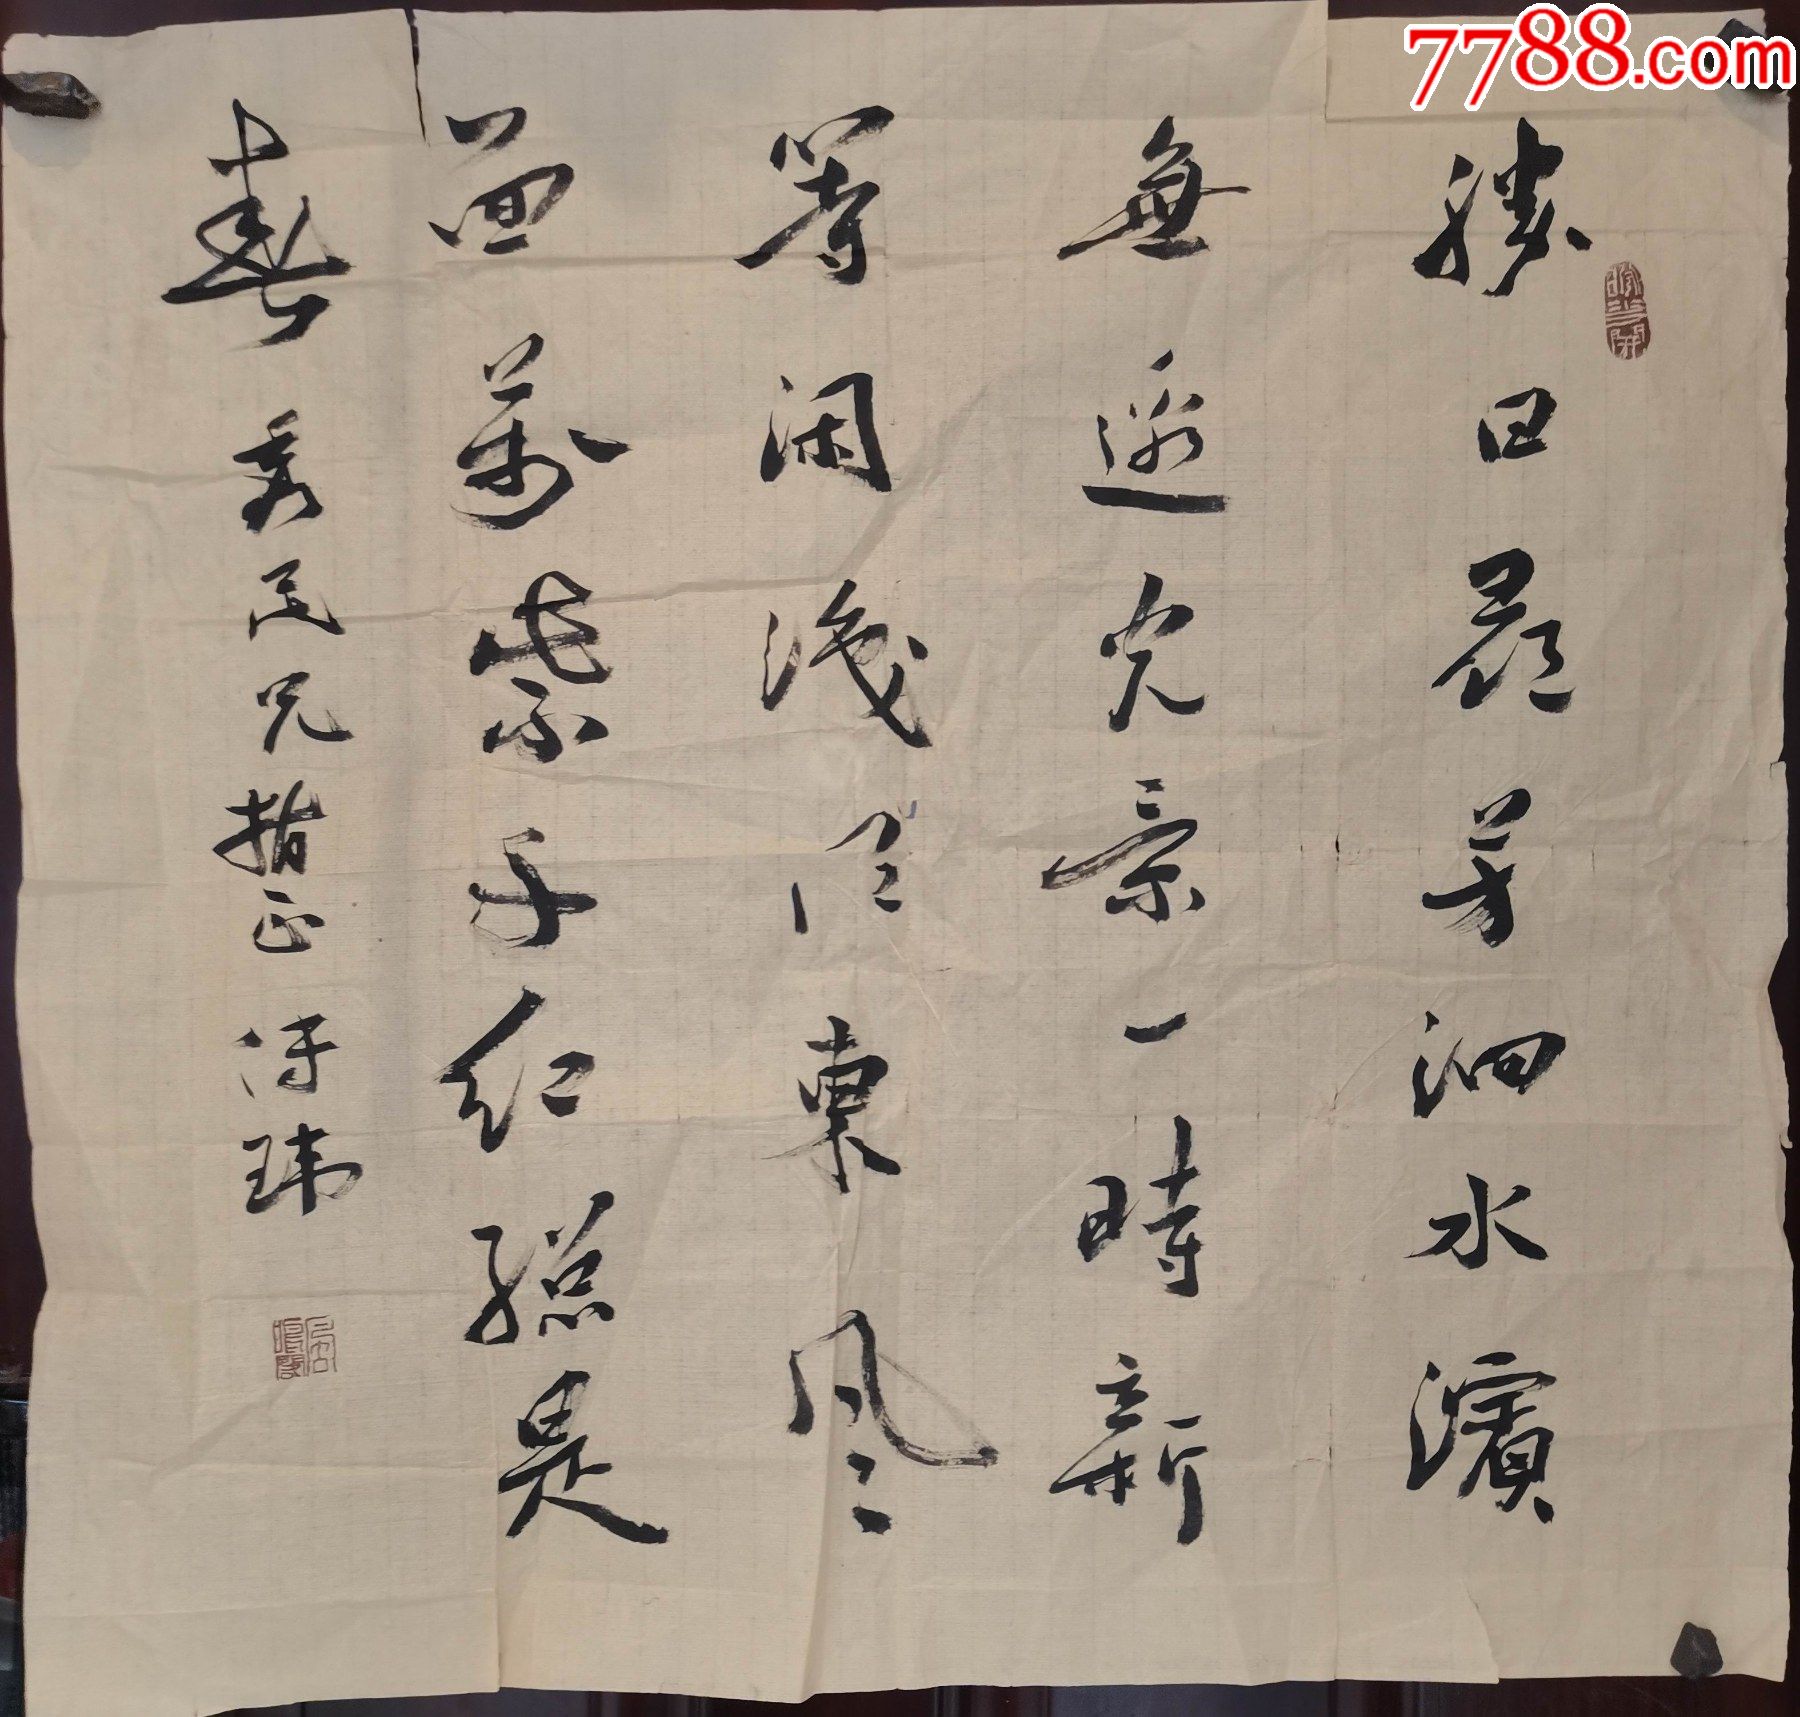 7788.com
勝日尋芳泗水濱
無邊光景一時新
等闲識得東風
面萬紫千红總是
春 秀民兄指正 玮